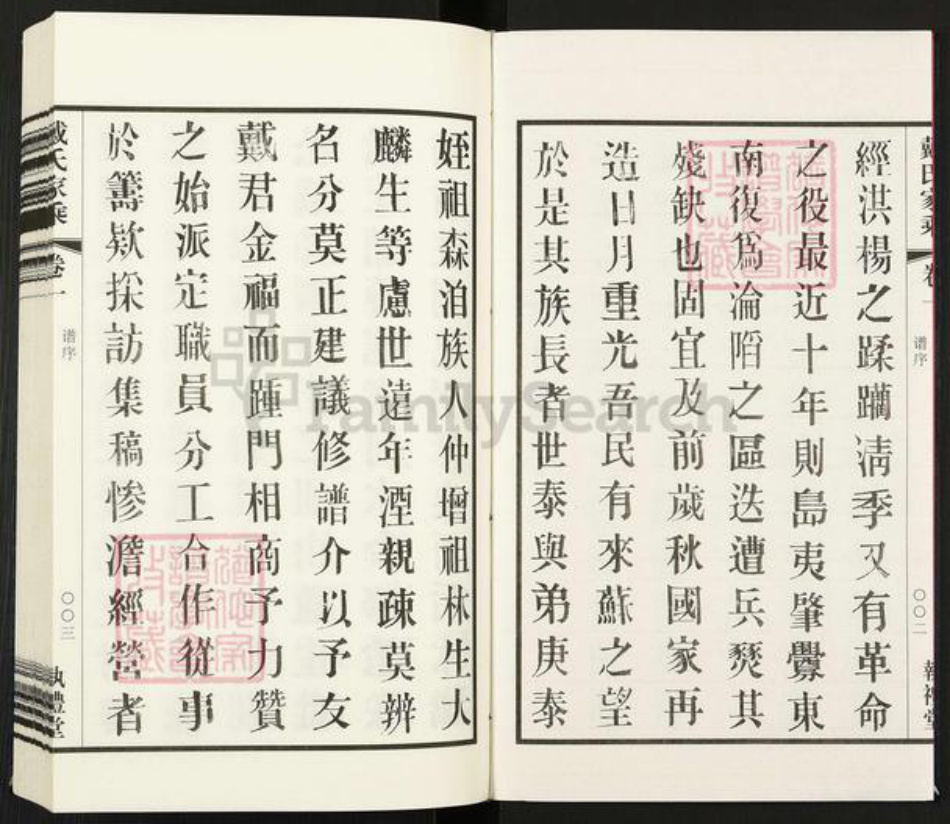 戴氏家乘
卷一
谱序
〇〇二
執禮堂
經洪楊之蹂躪清季又有革命
之役最近十年則島夷肇釁東
南復爲淪陷之區迭遭兵燹其
殘缺也固宜及前歲秋國家再
造日月重光吾民有來蘇之望
於是其族長者世泰與弟庚泰
姪祖森洎族人仲增祖林生大
麟生等慮世遠年湮親疎莫辨
名分莫正建議修譜介以予友
戴君金福而踵門相商予力贊
之始派定職員分工合作從事
於籌欵採訪集稿慘澹經營者
戴氏家乘
卷一
谱序
〇〇三
執禮堂
FamilySearch